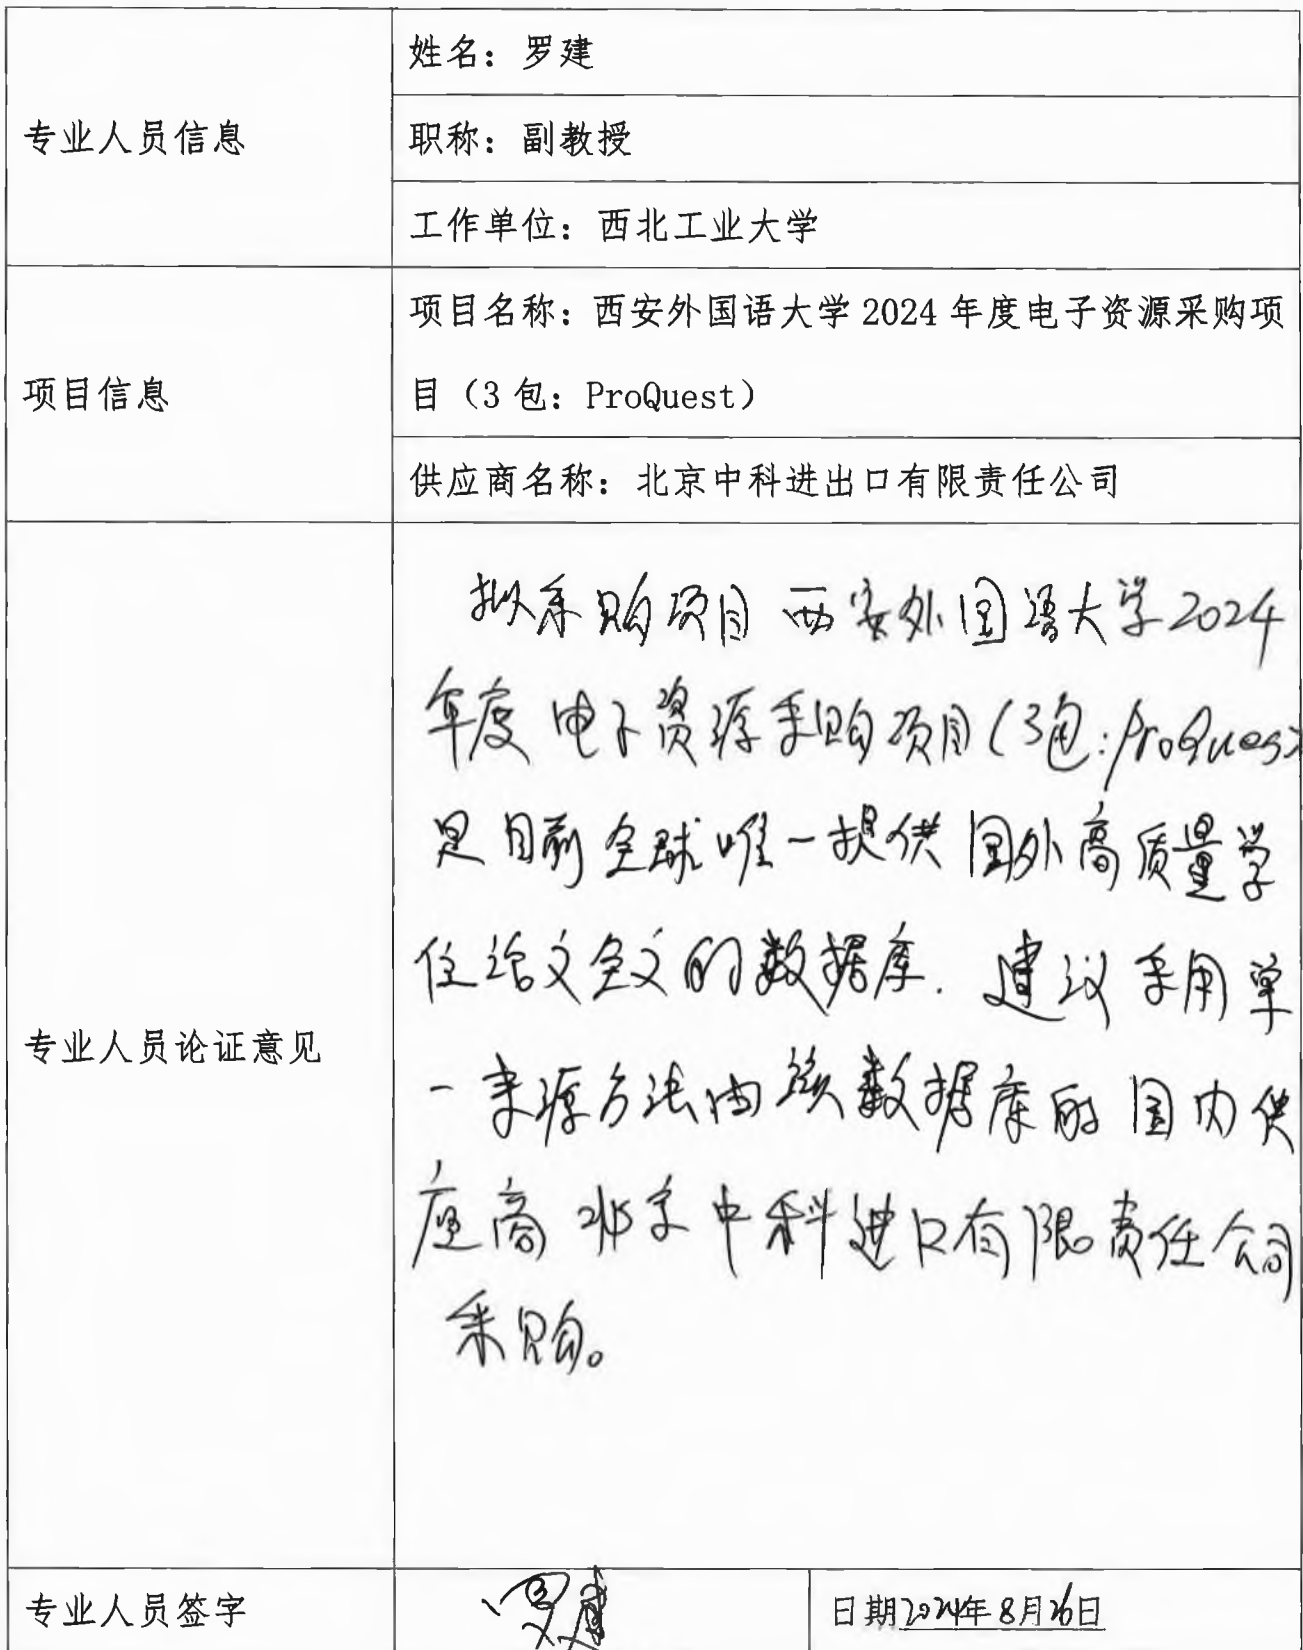 姓名：罗建
专业人员信息
职称：副教授
工作单位：西北工业大学
项目名称：西安外国语大学 2024 年度电子资源采购项
项目信息
目（3 包：ProQuest）
供应商名称：北京中科进出口有限责任公司
拟采购项目西安外国语大学2024
年度电子资源采购项目(3包:ProQuest
是目前全球唯一提供国外高质量学
位论文全文的数据库.建议采用单
专业人员论证意见
一来源方法由该数据库的国内供
应商北京中科进口有限责任公司
采购。
专业人员签字
罗建
日期2024年8月26日